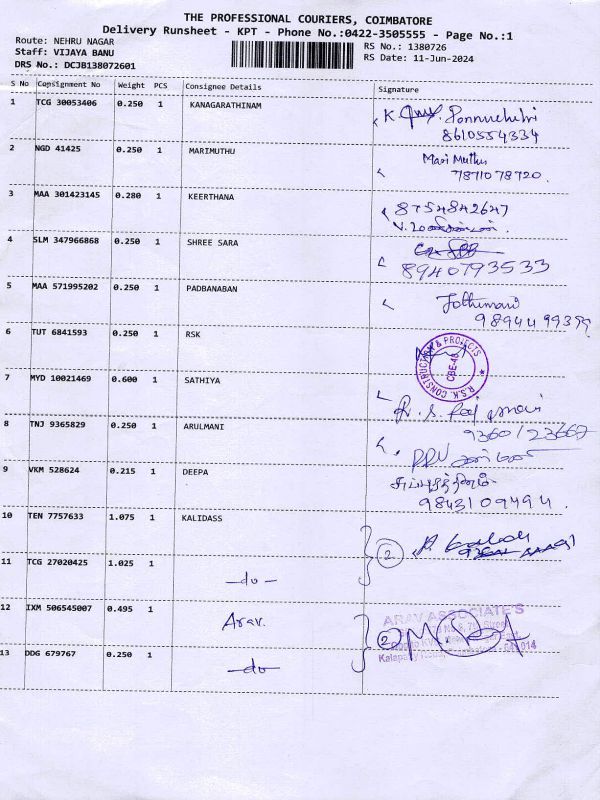 THE PROFESSIONAL COURIERS, COIMBATORE
Delivery Runsheet - KPT - Phone No.:0422-3505555 - Page No.:1
Route: NEHRU NAGAR
Staff: VIJAYA BANU
RS No.: 1380726
DRS No.: DCJB138072601
RS Date: 11-Jun-2024
S No Consignment No Weight PCS Consignee Details Signature
1 TCG 30053406 0.250 1 KANAGARATHINAM
K
8610554334
2 NGD 41425 0.250 1 MARIMUTHU Mari Muthu
7871078720.
3 MAA 301423145 0.280 1 KEERTHANA 8754842647
4 SLM 347966868 0.250 1 SHREE SARA
8940793533
5 MAA 571995202 0.250 1 PADBANABAN Jothimani
6 TUT 6841593 0.250 1 RSK R.S.K. CONSTRUCTION & PROJECTS CBE-48
7 MYD 10021469 0.600 1 SATHIYA
8 TNJ 9365829 0.250 1 ARULMANI 9360123667
9 VKM 528624 0.215 1 DEEPA
9843109494.
10 TEN 7757633 1.075 1 KALIDASS 2
11 TCG 27020425 1.025 1 -do-
12 IXM 506545007 0.495 1 Arav. ARAV ASSOCIATE'S
2
13 DDG 679767 0.250 1 -do-